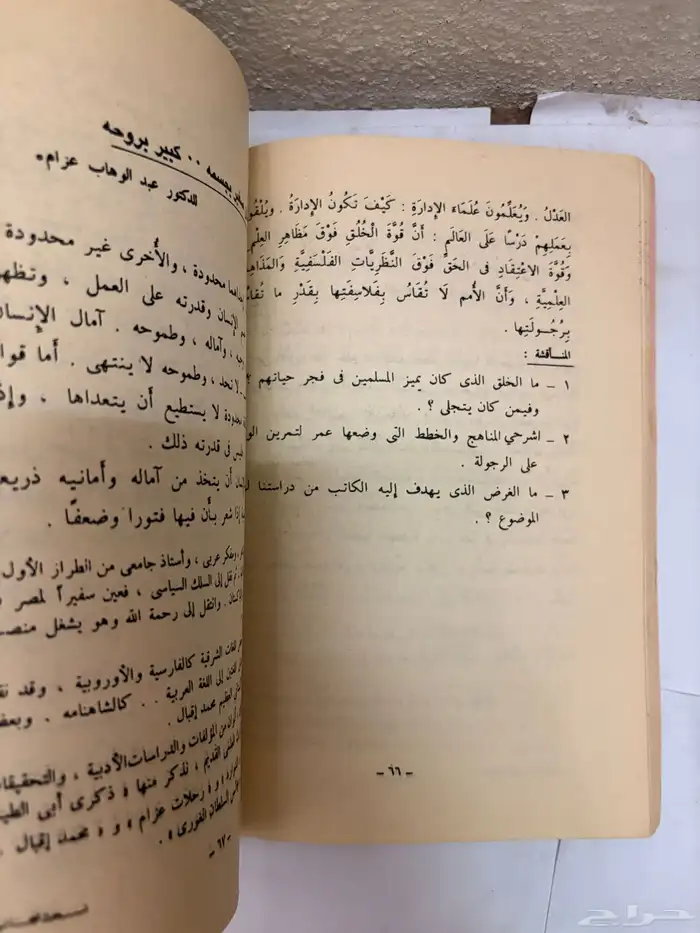 العَدْلُ . وَيُعَلِّمُونَ عُلَمَاءَ الإِدَارَةِ : كَيْفَ تَكُونُ الإِدَارَةُ . وَيُلْقُو
بِعَمَلِهِمْ دَرْسًا عَلَى العَالَمِ : أَنَّ قُوَّةَ الْخُلُقِ فَوْقَ مَظَاهِرِ العِلْمِ
وَقُوَّةَ الاعْتِقَادِ فى الحَقِّ فَوْقَ النَّظَرِيَّاتِ الفَلْسَفِيَّةِ وَالمَذَاهِـ
العِلْمِيَّةِ ، وَأَنَّ الأُمم لَا تُقَاسُ بِفَلَاسِفَتِها بِقَدْرِ ما تُقَاسُ
بِرُجُـولَتِها .
المناقشة :
١ – ما الخلق الذى كان يميز المسلمين فى فجر حياتهم ؟
وفيمن كان يتجلى ؟ .
٢ – اشرحي المناهج والخطط التى وضعها عمر لتمرين الو
على الرجولة .
٣ – ما الغرض الذى يهدف إليه الكاتب من دراستنا
الموضوع ؟ .
– ٦٦ –
بجسمه ٠٠ كبير بروحه
للدكتور عبد الوهاب عزام*
محدودة ، والأُخرى غير محدودة
الإنسان وقدرته على العمل ، وتظهر
وآماله ، وطموحه . آمال الإنسان
لا تحد ، وطموحه لا ينتهى . أما قوا
محدودة لا يستطيع أن يتعداها ، وإذ
فى قدرته ذلك .
أن يتخذ من آماله وأمانيه ذريعـ
بأن فيها فتورا وضعفًا .
ومفكر عربى ، وأستاذ جامعى من الطراز الأول
نقل إلى السلك السياسى ، فعين سفيراً لمصر
وانتقل إلى رحمة الله وهو يشغل منصـ
اللغات الشرقية كالفارسية والأوروبية ، وقد نقـ
إلى اللغة العربية . . كالشاهنامه . وبعض
محمد إقبال .
من المؤلفات والدراسات الأدبية ، والتحقيقات
القديم ، نذكر منها « ذكرى أبى الطيـ
و « رحلات عزام » و « محمد إقبال
السلطان الغورى » .
– ٦٧ –
حراج